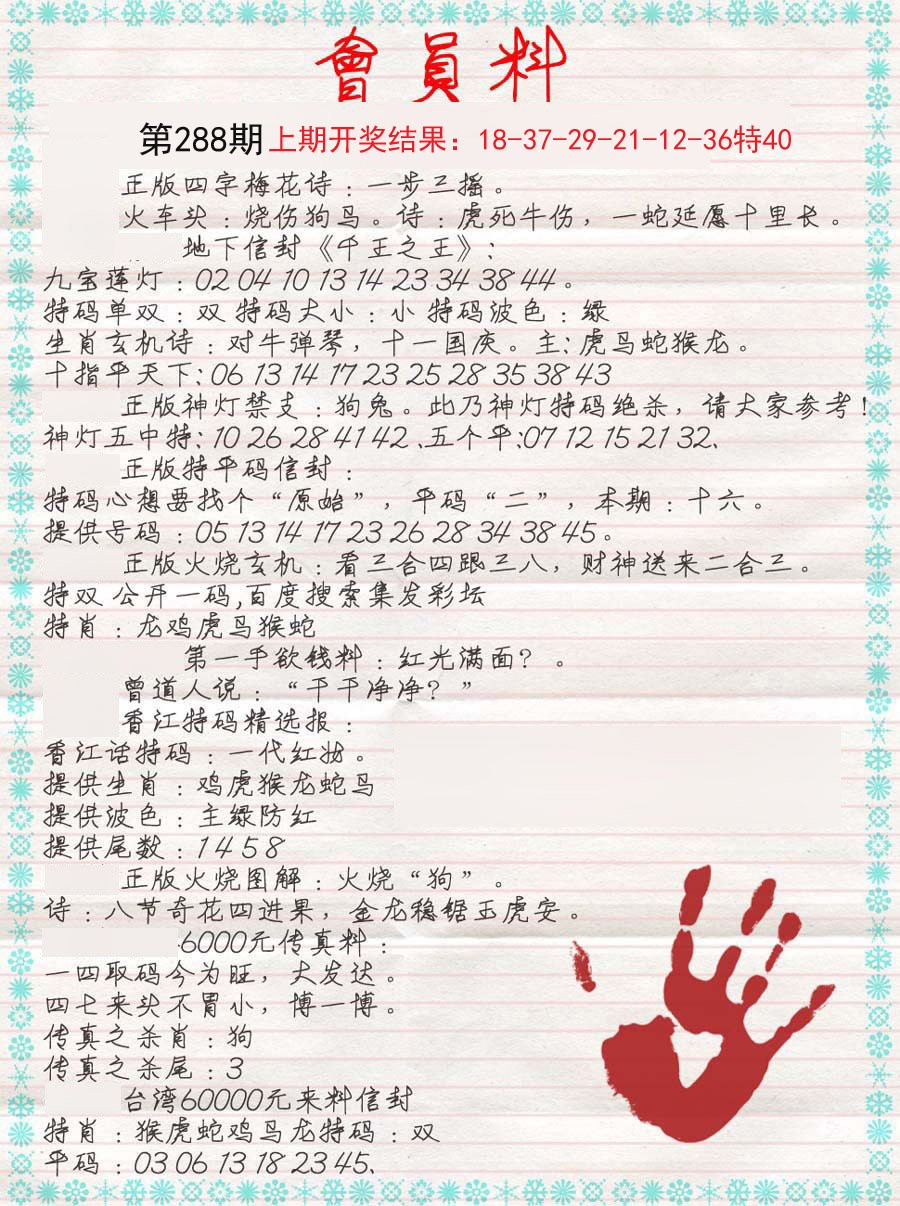 會員料
第288期上期开奖结果：18-37-29-21-12-36特40
正版四字梅花诗：一步三摇。
火车头：烧伤狗鸟。诗：虎死牛伤，一蛇延愿十里长。
地下信封《千王之王》：
九宝莲灯：02 04 10 13 14 23 34 38 44。
特码单双：双 特码大小：小 特码波色：绿
生肖玄机诗：对牛弹琴，十一国庆。主：虎鸟蛇猴龙。
十指平天下：06 13 14 17 23 25 28 35 38 43
正版神灯禁支：狗兔。此乃神灯特码绝杀，请大家参考！
神灯五中特：10 26 28 41 42、五个平：07 12 15 21 32、
正版特平码信封：
特码心想要找个“原始”，平码“二”，本期：十六。
提供号码：05 13 14 17 23 26 28 34 38 45。
正版火烧玄机：看三合四跟三八，财神送来二合三。
特双 公开一码,百度搜索集发彩坛
特肖：龙鸡虎鸟猴蛇
第一手欲钱料：红光满面？。
曾道人说：“干干净净？”
香江特码精选报：
香江话特码：一代红妆。
提供生肖：鸡虎猴龙蛇鸟
提供波色：主绿防红
提供尾数：1 4 5 8
正版火烧图解：火烧“狗”。
诗：八节奇花四进果，金龙稳锯玉虎安。
6000元传真料：
一四取码今为旺，大发达。
四七来头不冒小，博一博。
传真之杀肖：狗
传真之杀尾：3
台湾60000元来料信封
特肖：猴虎蛇鸡鸟龙特码：双
平码：03 06 13 18 23 45、